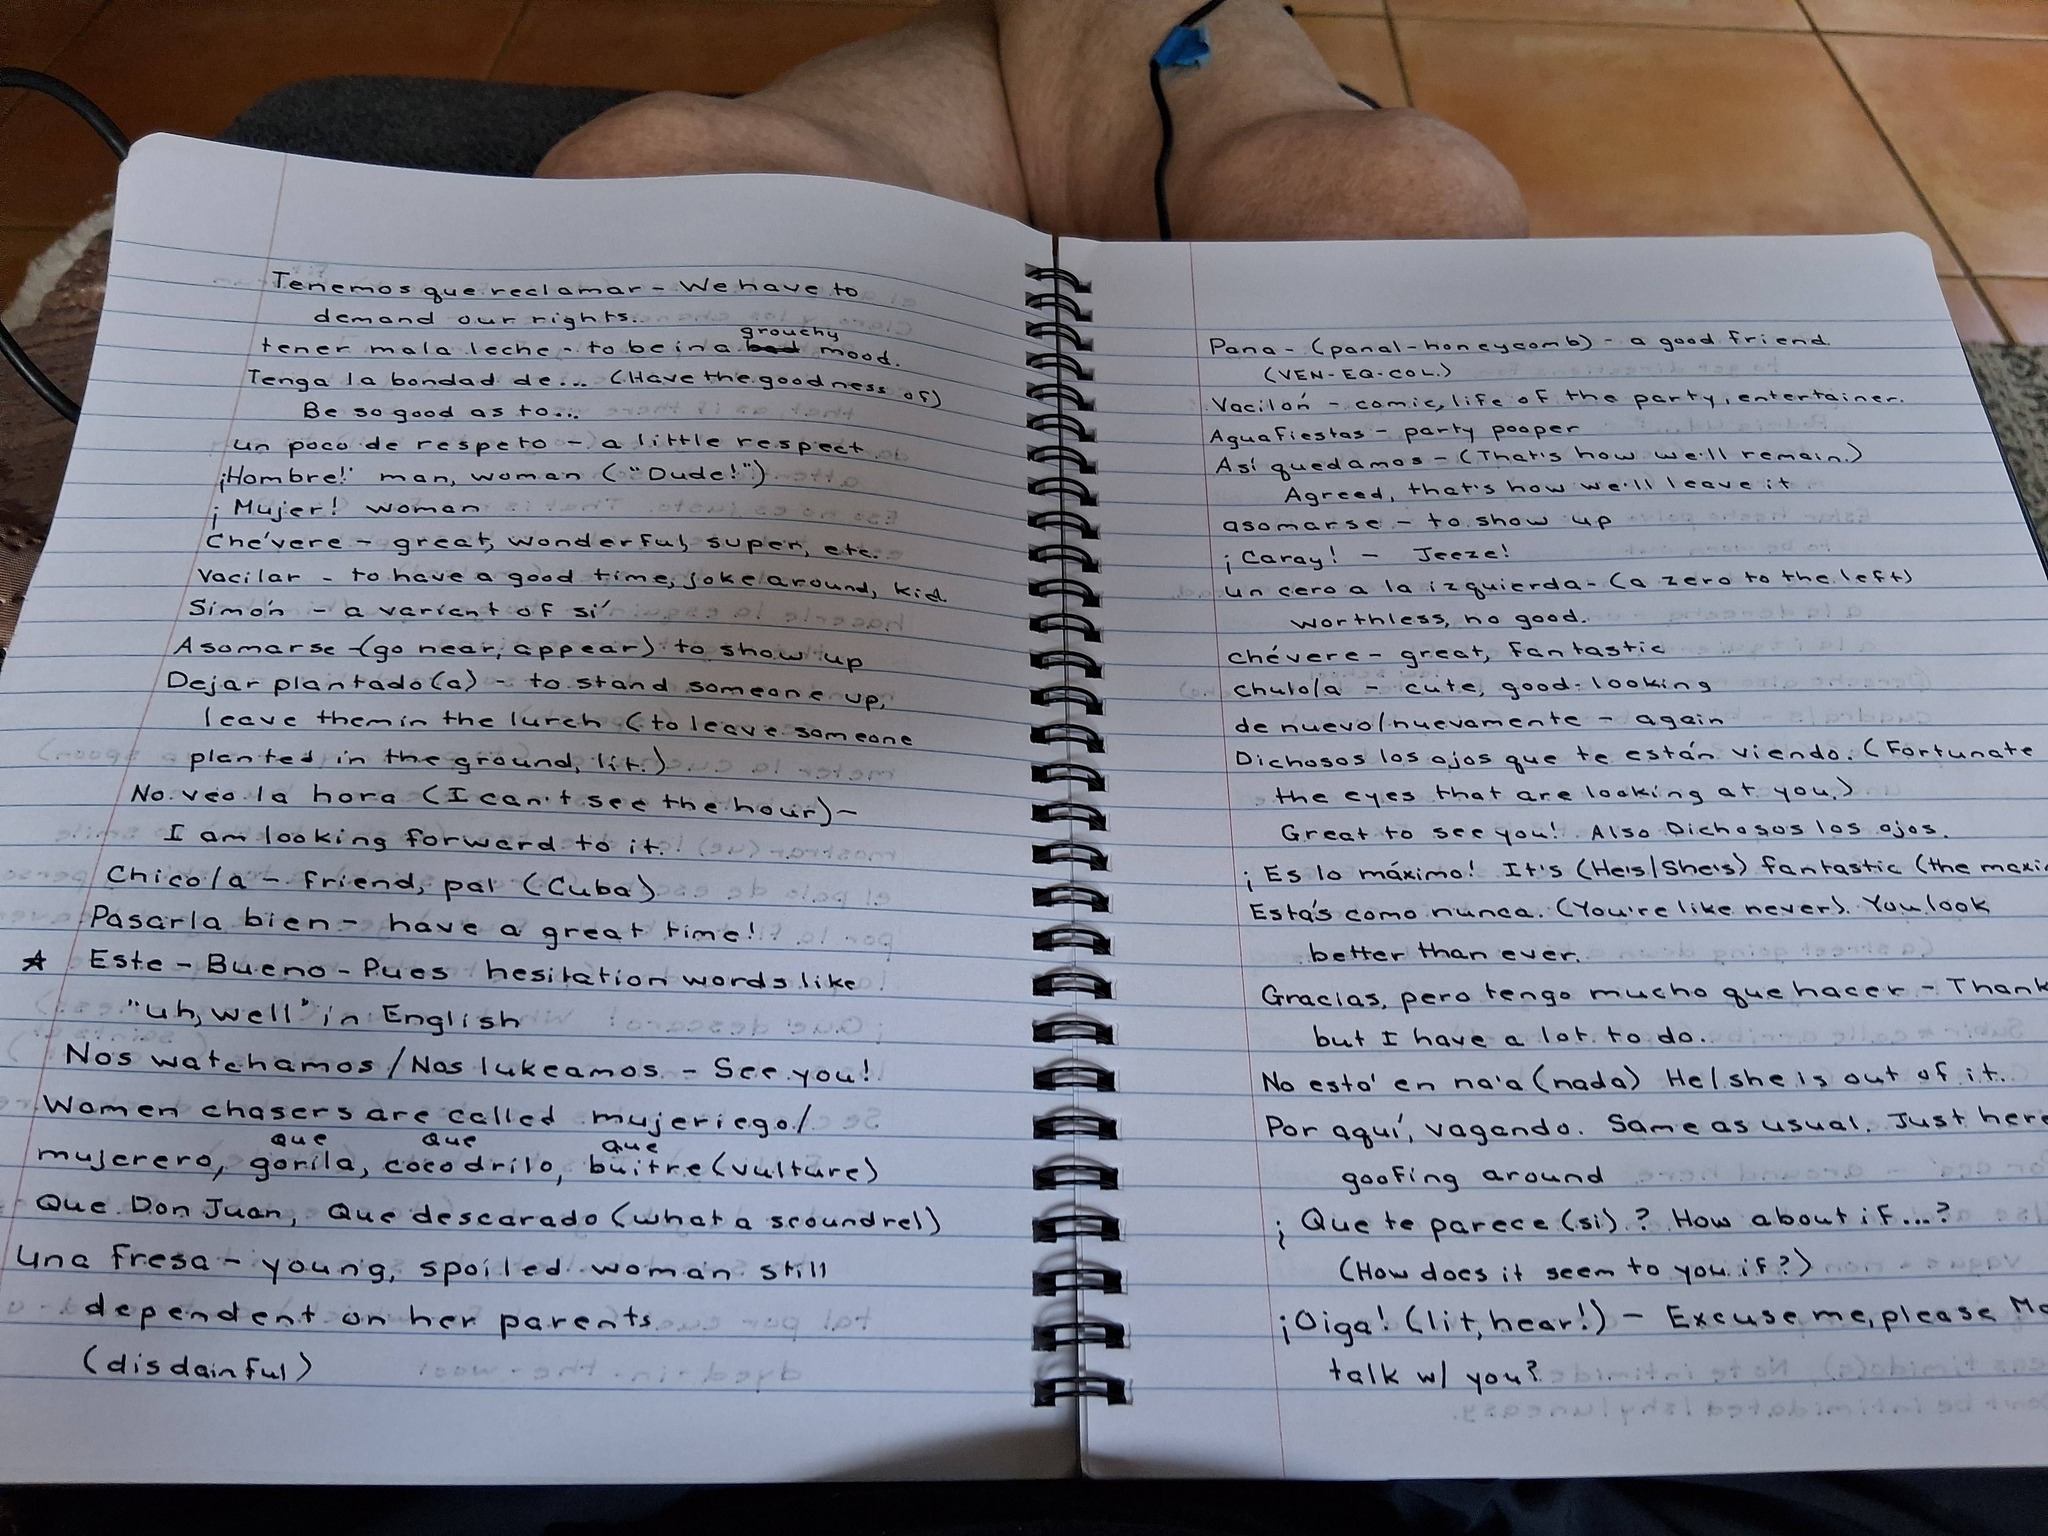 Tenemos que reclamar - We have to
demand our rights.
grouchy
tener mala leche - to be in a bad mood.
Tenga la bondad de... (Have the goodness of)
Be so good as to...
un poco de respeto - a little respect
¡Hombre! man, woman ("Dude!")
¡Mujer! woman
Chévere - great, wonderful, super, etc.
Vacilar - to have a good time, joke around, kid.
Simón - a varient of sí
Asomarse - (go near, appear) to show up
Dejar plantado(a) - to stand someone up,
leave them in the lurch (to leave someone
planted in the ground, lit.)
No veo la hora (I can't see the hour) -
I am looking forward to it.
Chico/a - friend, pal (Cuba)
Pasarla bien - have a great time!
☆ Este - Bueno - Pues hesitation words like
"uh, well" in English
Nos watchamos / Nos lukeamos - See you!
Women chasers are called mujeriego/
que que que
mujerero, gorila, cocodrilo, buitre (vulture)
Que Don Juan, Que descarado (what a scoundrel)
una fresa - young, spoiled woman still
dependent on her parents
(disdainful)
Pana - (panal-honeycomb) - a good friend.
(VEN-EQ-COL.)
Vacilón - comic, life of the party, entertainer.
Aguafiestas - party pooper
Así quedamos - (That's how we'll remain.)
Agreed, that's how we'll leave it
asomarse - to show up
¡Caray! - Jeeze!
un cero a la izquierda - (a zero to the left)
worthless, no good.
chévere - great, fantastic
chulo/a - cute, good-looking
de nuevo/nuevamente - again
Dichosos los ojos que te están viendo. (Fortunate
the eyes that are looking at you.)
Great to see you! Also Dichosos los ojos.
¡Es lo máximo! It's (He's/She's) fantastic (the
Estás como nunca. (You're like never). You look
better than ever.
Gracias, pero tengo mucho que hacer - Thank
but I have a lot to do.
No está en na'a (nada) He/she is out of it.
Por aquí, vagando. Same as usual. Just here
goofing around
¡Que te parece (si)? How about if...?
(How does it seem to you if?)
¡Oiga! (lit, hear!) - Excuse me, please
talk w/ you?